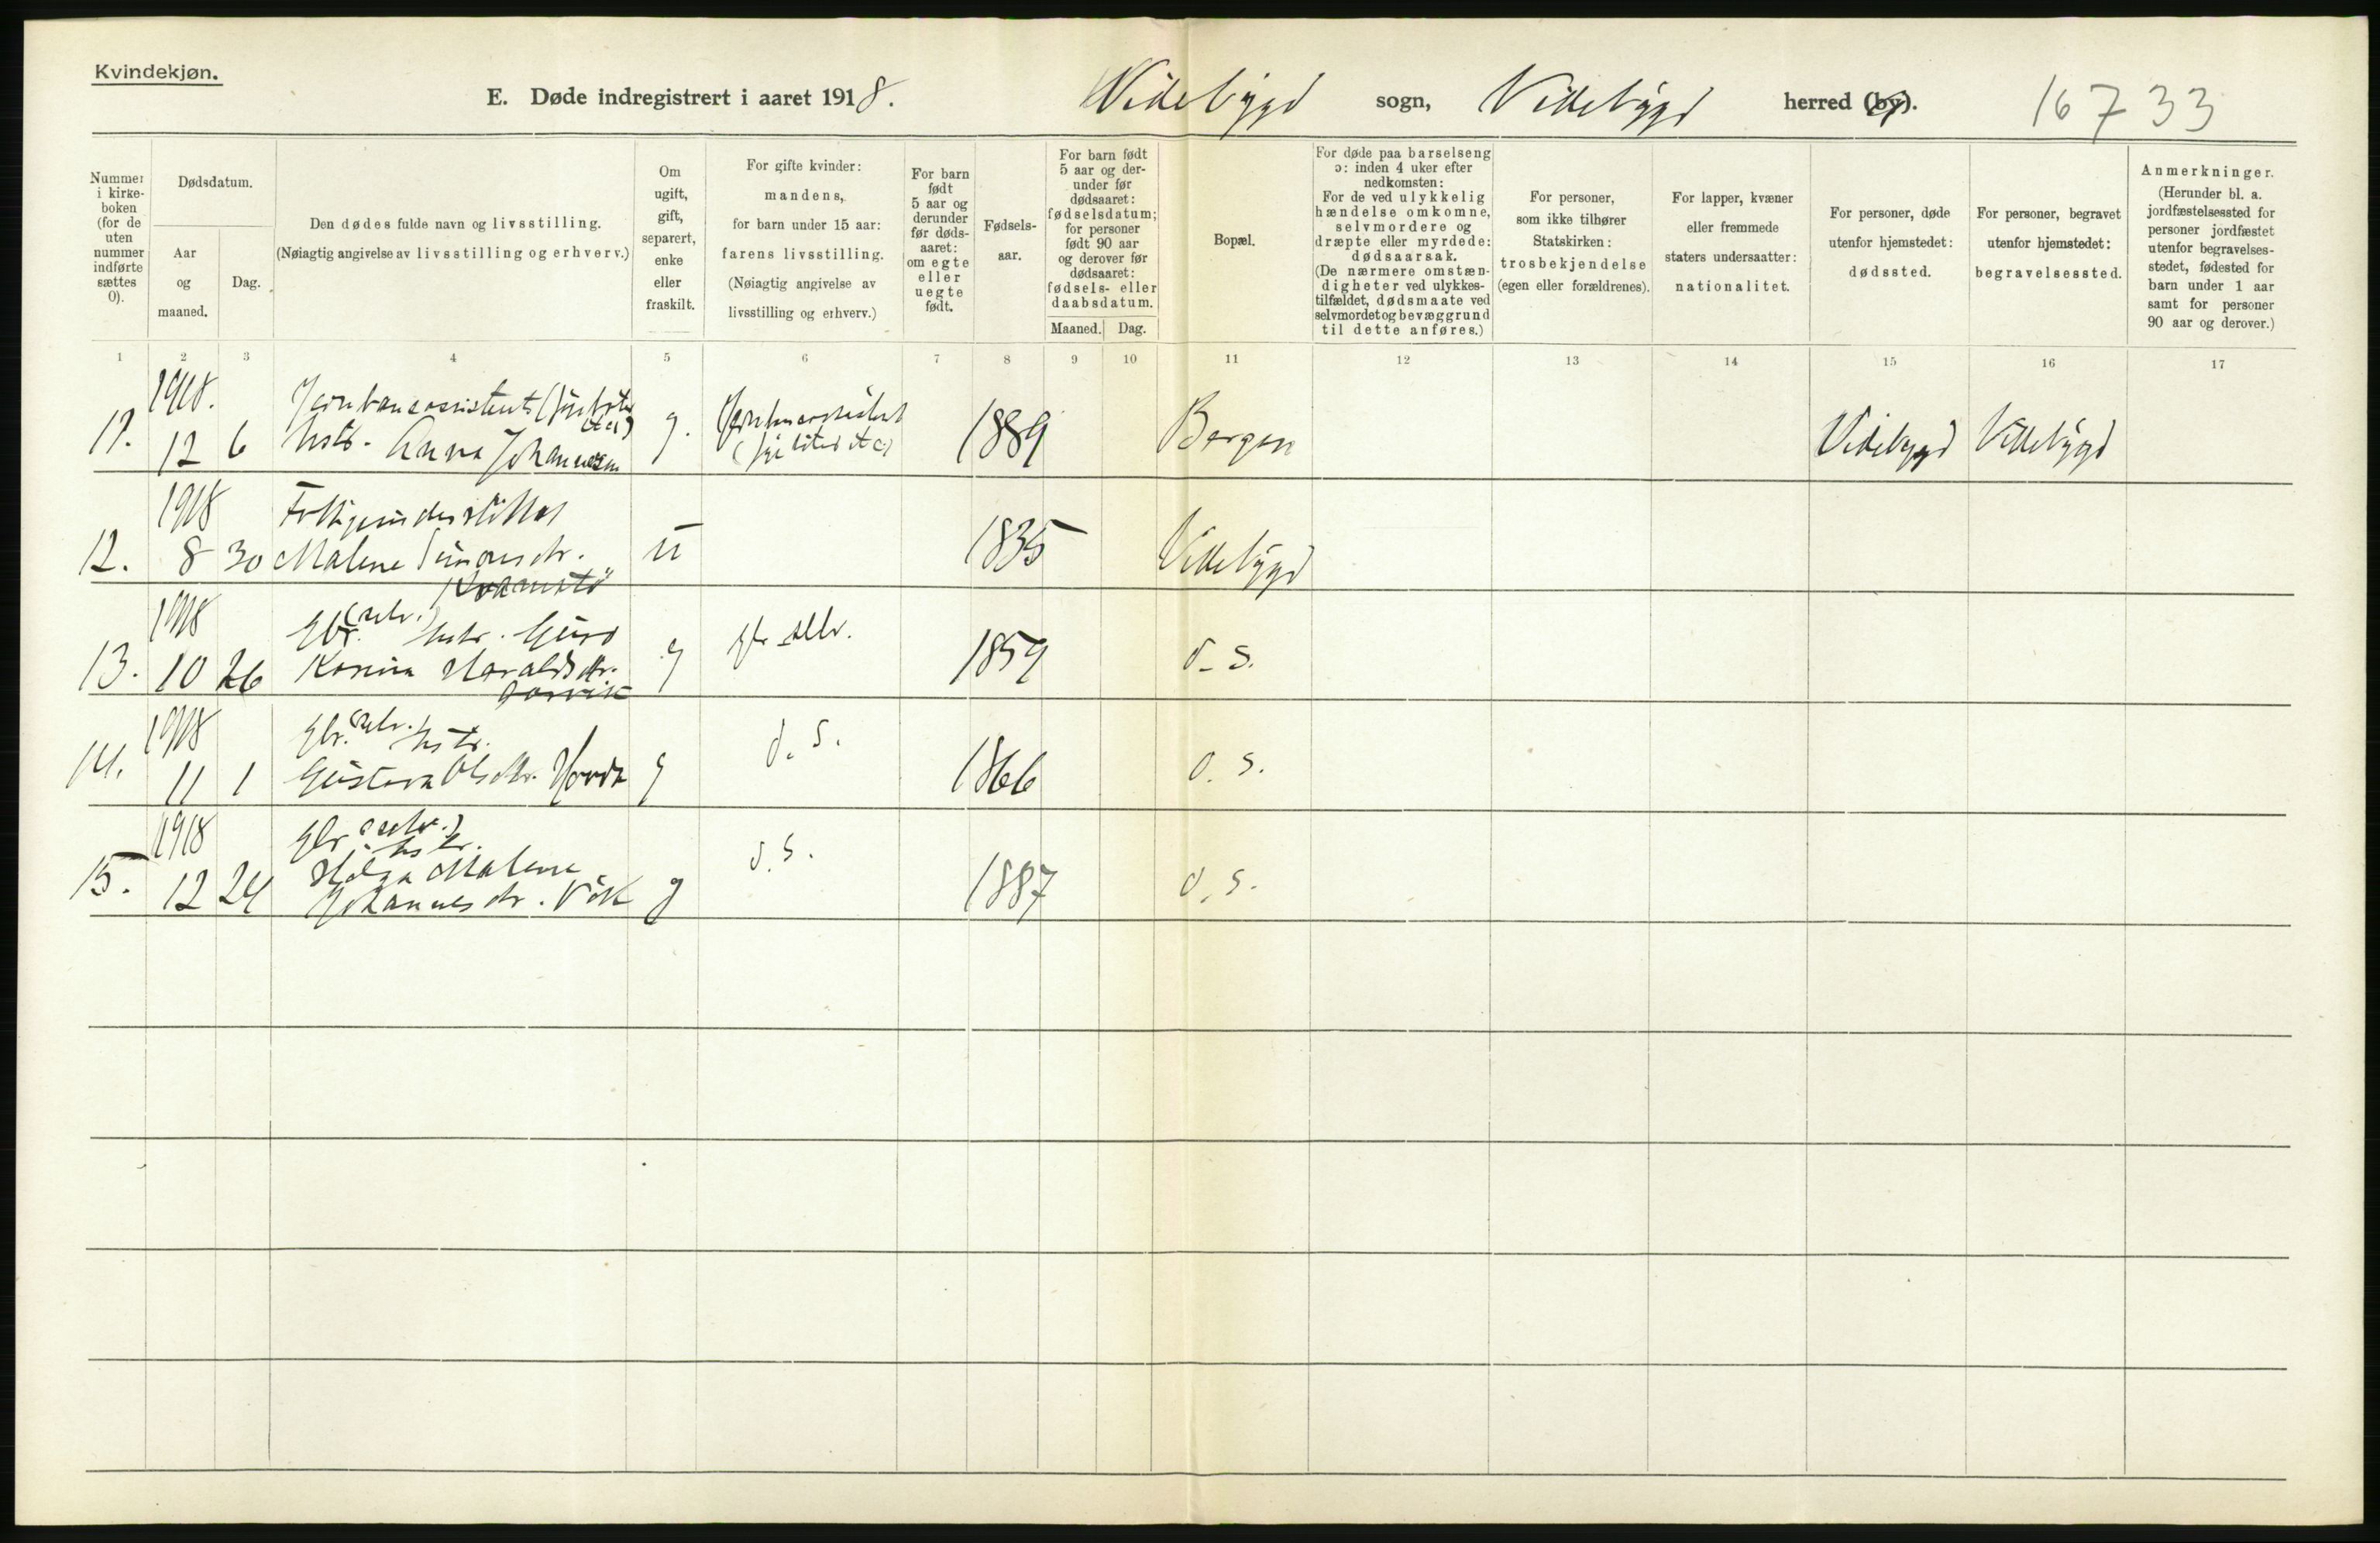 Kvindekjøn.
E. Døde indregistrert i aaret 1918. Vikebygd sogn, Vikebygd herred (by). 16733
Nummer i kirke-boken (for de uten nummer indførte sættes 0).
Dødsdatum.
Aar og maaned.
Dag.
Den dødes fulde navn og livsstilling.
(Nøiagtig angivelse av livsstilling og erhverv.)
Om ugift, gift, separert, enke eller fraskilt.
For gifte kvinder:
mandens,
for barn under 15 aar:
farens livsstilling.
(Nøiagtig angivelse av
livsstilling og erhverv.)
For barn født 5 aar og derunder før døds-aaret: om egte eller uegte født.
Fødsels-aar.
For barn født 5 aar og der-under før dødsaaret: fødselsdatum; for personer født 90 aar og derover før dødsaaret: fødsels- eller daabsdatum.
Maaned. Dag.
Bopæl.
For døde paa barselseng
ɔ: inden 4 uker efter
nedkomsten:
For de ved ulykkelig
hændelse omkomne,
selvmordere og
dræpte eller myrdede:
dødsaarsak.
(De nærmere omstæn-
digheter ved ulykkes-
tilfældet, dødsmaate ved
selvmordet og bevæggrund
til dette anføres.)
For personer,
som ikke tilhører
Statskirken:
trosbekjendelse
(egen eller forældrenes).
For lapper, kvæner
eller fremmede
staters undersaatter:
nationalitet.
For personer, døde
utenfor hjemstedet:
dødssted.
For personer, begravet
utenfor hjemstedet:
begravelsessted.
Anmerkninger.
(Herunder bl. a.
jordfæstelsessted for
personer jordfæstet
utenfor begravelses-
stedet, fødested for
barn under 1 aar
samt for personer
90 aar og derover.)
1 2 3 4 5 6 7 8 9 10 11 12 13 14 15 16 17
1918. Jernbaneassistents
11. 12 6 hstr. Anna Johannesen g. 1889 Bergen Vikebygd Vikebygd
1918
12. 8 30 Malene Simonsdr. u 1835 Vikebygd
1918 Gbr. (selv.) hstr. Guro
13. 10 26 Karina Haraldsdr. g gbr selv. 1859 d. s.
1918 Gbr. selv. hstr.
14. 11 1 Gustava Olsdtr. g d. s. 1866 d. s.
1918 Gbr (selv.) hstr.
15. 12 24 Helga Malene g d. s. 1887 d. s.
Johannesdr. Vik